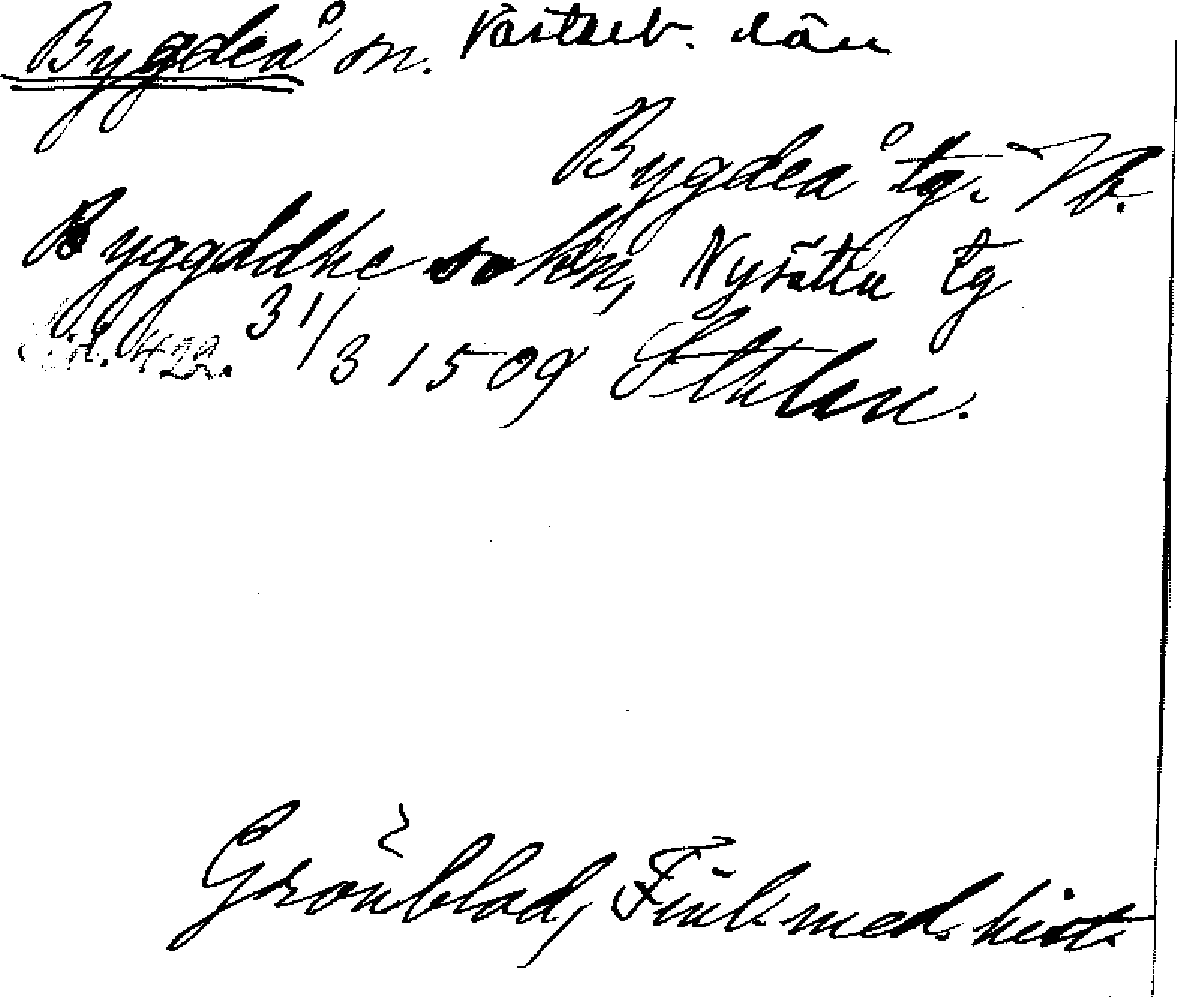 Bygdeå sn. Västerb. län
Bygdeå tg. Vb.
Byggddhe sokn, Nysätra tg
s. 422. 31/3 1509 Sthlm.
Grönblad, Finl. med. hist.